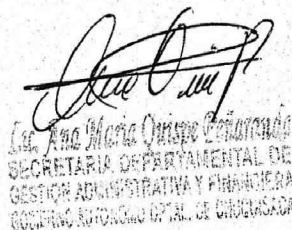 Lic. Ana Maria Quispe Peñaranda
SECRETARIA DEPARTAMENTAL DE
GESTION ADMINISTRATIVA Y FINANCIERA
GOBIERNO AUTONOMO DPTAL. DE CHUQUISACA